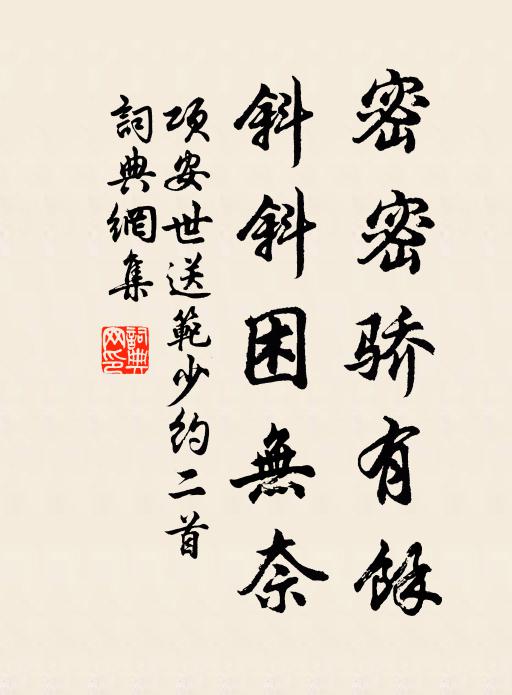 密密骄有餘
斜斜困無奈
項安世送範少約二首
詞典網集
詞典網印